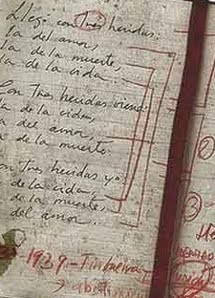 Llegó con tres heridas:
la del amor,
la de la muerte,
la de la vida
Con tres heridas viene:
la de la vida,
la del amor,
la de la muerte.
Con tres heridas yo:
la de la vida,
la de la muerte,
del amor.
1939-